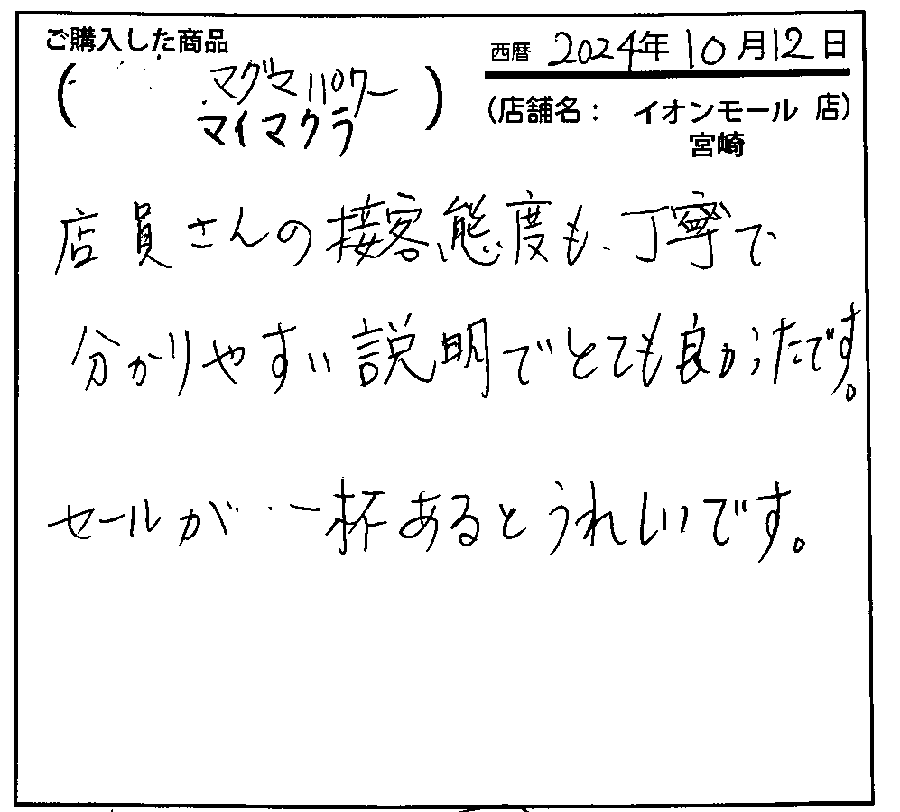 ご購入した商品
西暦 2024年10月12日
(マグマパワー
マイマクラ)
(店舗名: イオンモール 店)
宮崎
店員さんの接客態度も、丁寧で
分かりやすい説明でとても良かったです。
セールが一杯あるとうれしいです。